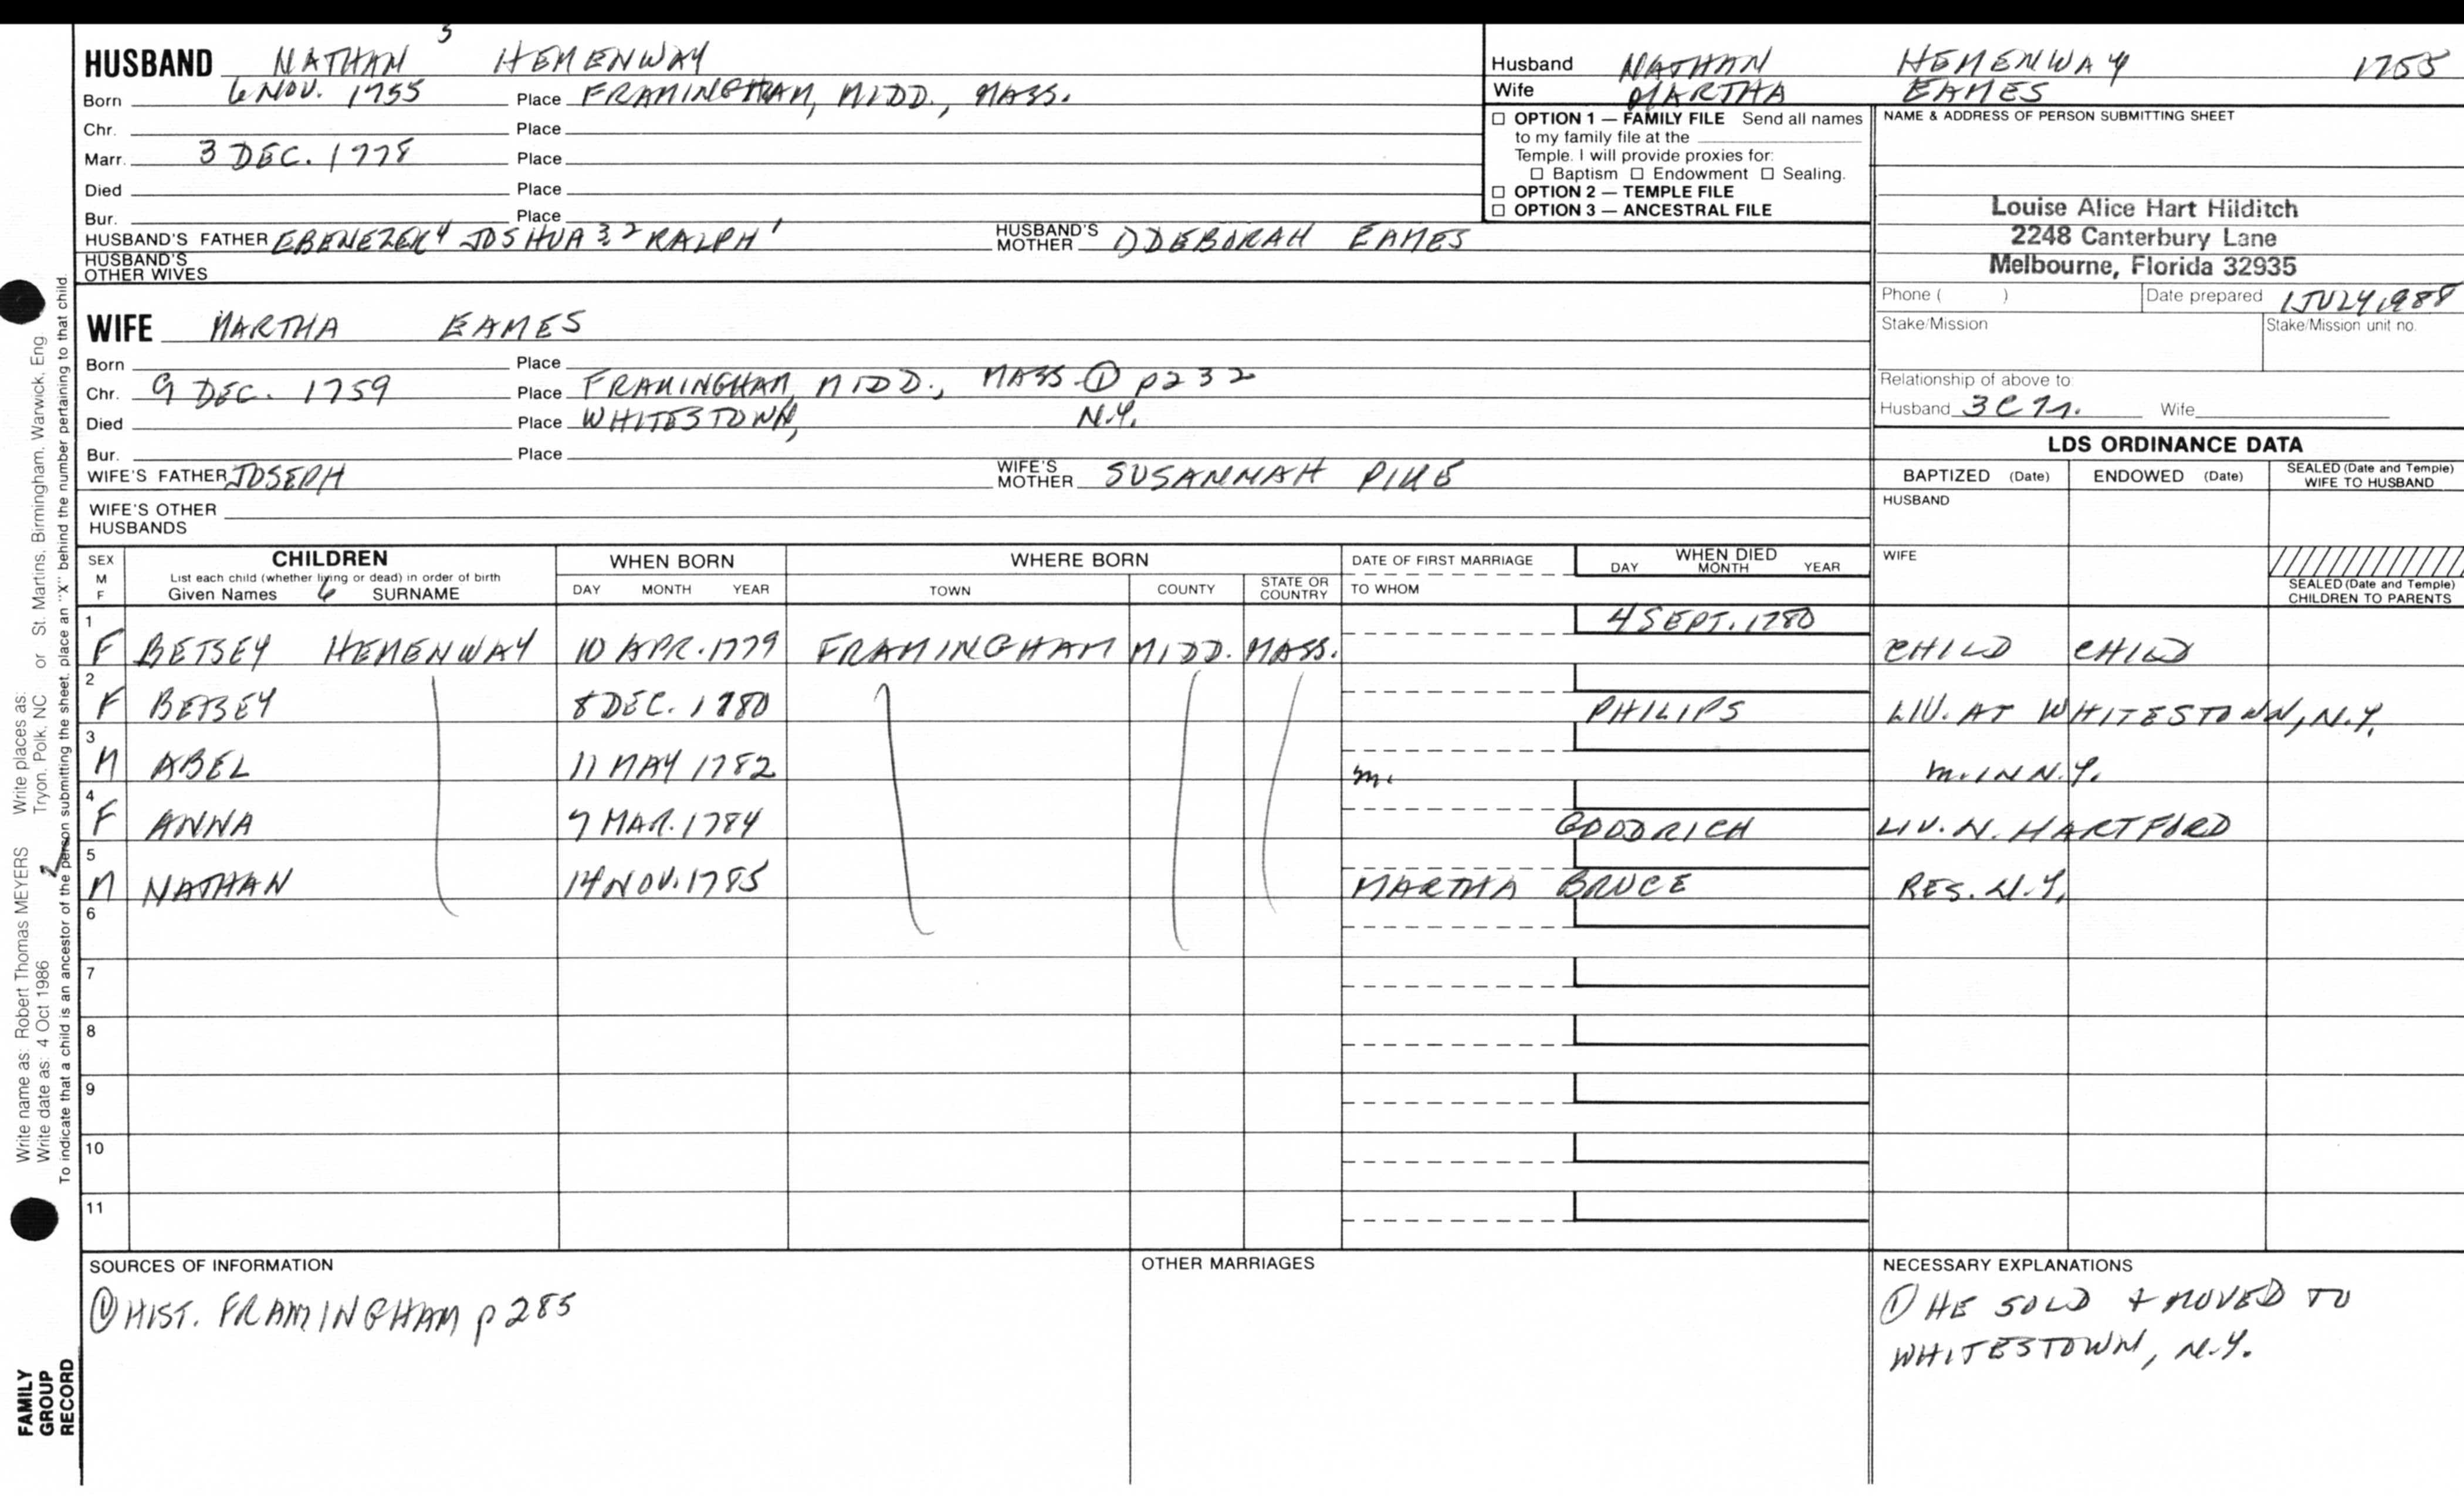 HUSBAND NATHAN 5 HEMENWAY
Born 6 NOV. 1755 Place FRAMINGHAM, MIDD., MASS.
Chr. Place
Marr. 3 DEC. 1778 Place
Died Place
Bur. Place
HUSBAND'S FATHER EBENEZER 4 JOSHUA 3, 2 RALPH 1 HUSBAND'S MOTHER DDEBORAH EAMES
HUSBAND'S OTHER WIVES
Husband NATHAN HEMENWAY 1755
Wife MARTHA EAMES
☐ OPTION 1 — FAMILY FILE Send all names
to my family file at the
Temple. I will provide proxies for:
☐ Baptism ☐ Endowment ☐ Sealing.
☐ OPTION 2 — TEMPLE FILE
☐ OPTION 3 — ANCESTRAL FILE
NAME & ADDRESS OF PERSON SUBMITTING SHEET
Louise Alice Hart Hilditch
2248 Canterbury Lane
Melbourne, Florida 32935
Phone ( ) Date prepared 1 JULY 1988
Stake/Mission Stake/Mission unit no.
Relationship of above to:
Husband 3C Wife
WIFE MARTHA EAMES
Born Place
Chr. 9 DEC. 1759 Place FRAMINGHAM, MIDD., MASS ① p232
Died Place WHITESTOWN, N.Y.
Bur. Place
WIFE'S FATHER JOSEPH WIFE'S MOTHER SUSANNAH PIKE
WIFE'S OTHER HUSBANDS
LDS ORDINANCE DATA
BAPTIZED (Date) ENDOWED (Date) SEALED (Date and Temple) WIFE TO HUSBAND
HUSBAND
WIFE
SEALED (Date and Temple) CHILDREN TO PARENTS
SEX M F CHILDREN WHEN BORN WHERE BORN DATE OF FIRST MARRIAGE WHEN DIED
List each child (whether living or dead) in order of birth
Given Names 6 SURNAME DAY MONTH YEAR TOWN COUNTY STATE OR COUNTRY TO WHOM DAY MONTH YEAR
1 F BETSEY HEMENWAY 10 APR. 1779 FRAMINGHAM MIDD. MASS. 4 SEPT. 1780 CHILD CHILD
2 F BETSEY 8 DEC. 1780 PHILIPS LIV. AT WHITESTOWN, N.Y.
3 M ABEL 11 MAY 1782 m. m. IN N.Y.
4 F ANNA 7 MAR. 1784 GOODRICH LIV. N. HARTFORD
5 M NATHAN 14 NOV. 1785 MARTHA BRUCE RES. N.Y.
6
7
8
9
10
11
SOURCES OF INFORMATION
① HIST. FRAMINGHAM p 285
OTHER MARRIAGES
NECESSARY EXPLANATIONS
① HE SOLD + MOVED TO
WHITESTOWN, N.Y.
Write name as: Robert Thomas MEYERS Write places as:
Write date as: 4 Oct 1986 2 Tryon, Polk, NC or St. Martins, Birmingham, Warwick, Eng.
To indicate that a child is an ancestor of the person submitting the sheet, place an "X" behind the number pertaining to that child.
FAMILY
GROUP
RECORD